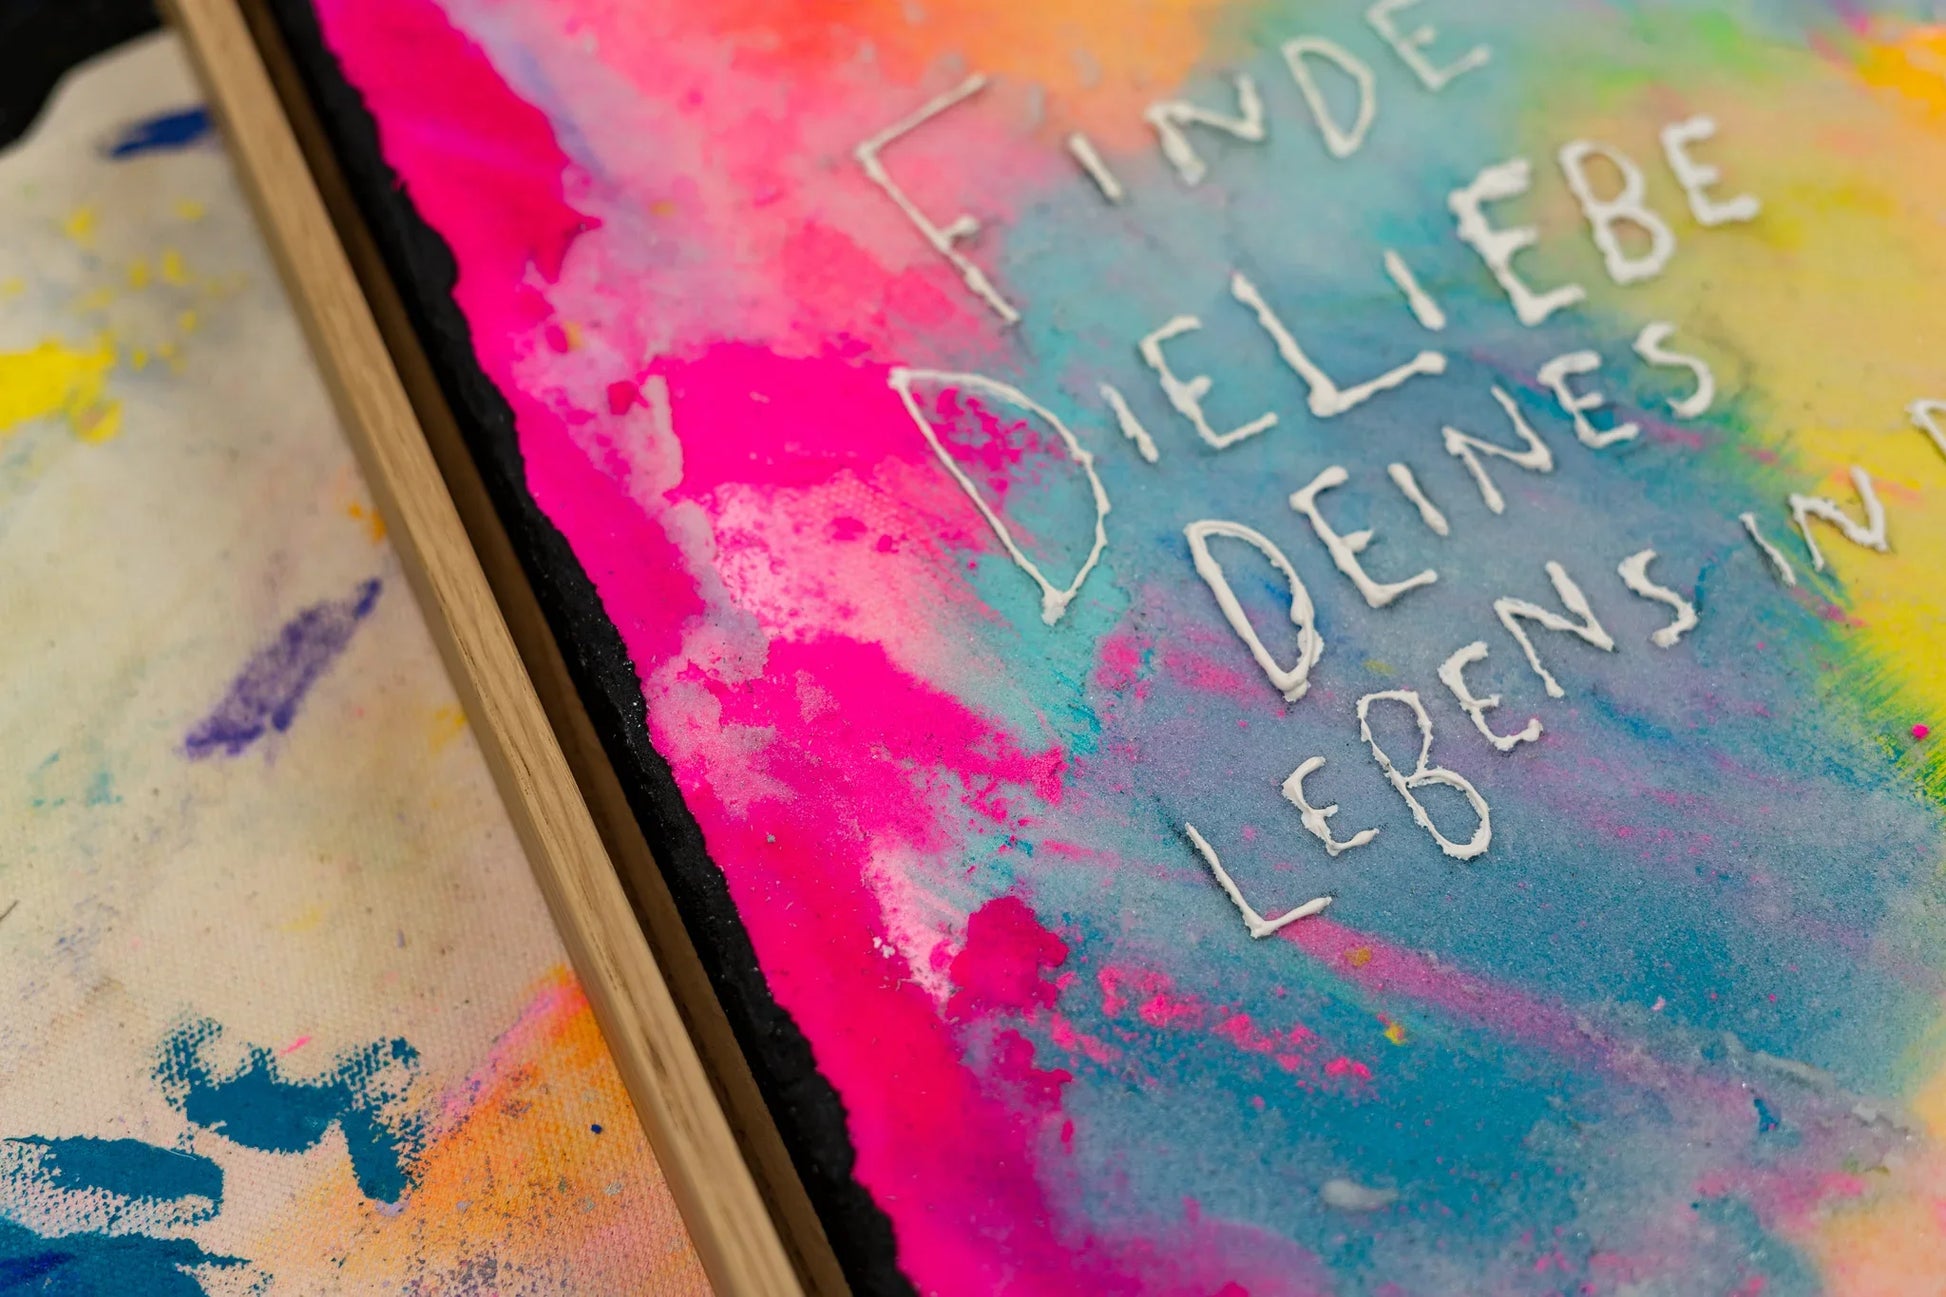 FINDE
DIE LIEBE
DEINES
LEBENS IN